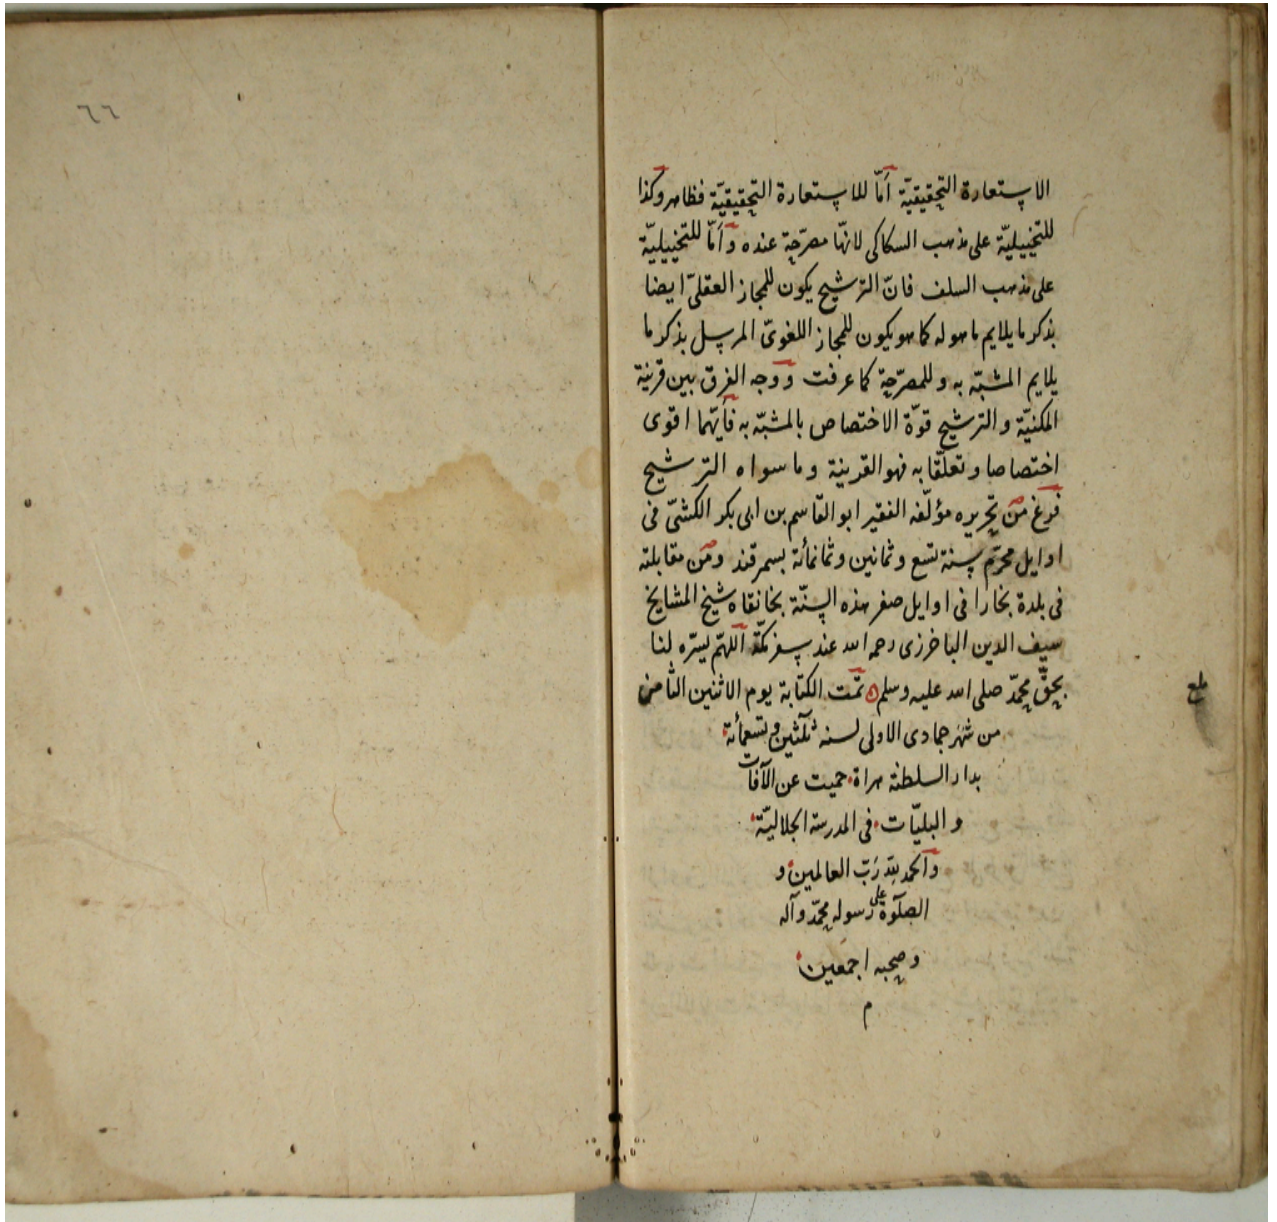 الاستعارة التحقيقيّة أمّا للاستعارة التحقيقيّة فظاهر وكذا
للتخييليّة على مذهب السكاكى لانّها مصرّحة عنده وأمّا للتخييليّة
على مذهب السلف فانّ الترشيح يكون للمجاز العقلىّ ايضا
بذكر ما يلايم ما هو له كما هو يكون للمجاز اللغوىّ المرسل بذكر ما
يلايم المشبّه به وللمصرّحة كما عرفت ووجه الفرق بين قرينة
المكنيّة والترشيح قوّة الاختصاص بالمشبّه به فأيّهما اقوى
اختصاصا وتعلّقا به فهو القرينة وما سواه الترشيح
فرغ من تحريره مؤلّفه الفقير ابو القاسم بن ابى بكر الكشىّ فى
اوايل محرّم سنة تسع وثمانين وثمانمأئة بسمرقند ومن مقابلته
فى بلدة بخارا فى اوايل صفر هذه السنّة بخانقاه شيخ المشايخ
سيف الدين الباخرزى رحمه الله عند سفر مكّة اللهمّ يسّره لنا
بحقّ محمّد صلى الله عليه وسلم تمّت الكتابة يوم الاثنين الثامن
من شهر جمادى الاولى لسنه ثلثين وتسعمأئة
بدار السلطنه هراة حميت عن الآفات
والبليّات فى المدرسة الجلاليّة
والحمد لله ربّ العالمين و
الصلوة على رسوله محمّد وآله
وصحبه اجمعين
م
٦٦